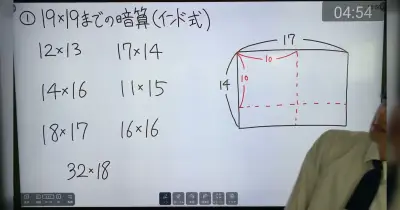 04:54
① 19×19までの暗算(インド式)
12×13 17×14
14×16 11×15
18×17 16×16
32×18
17
10
14
10